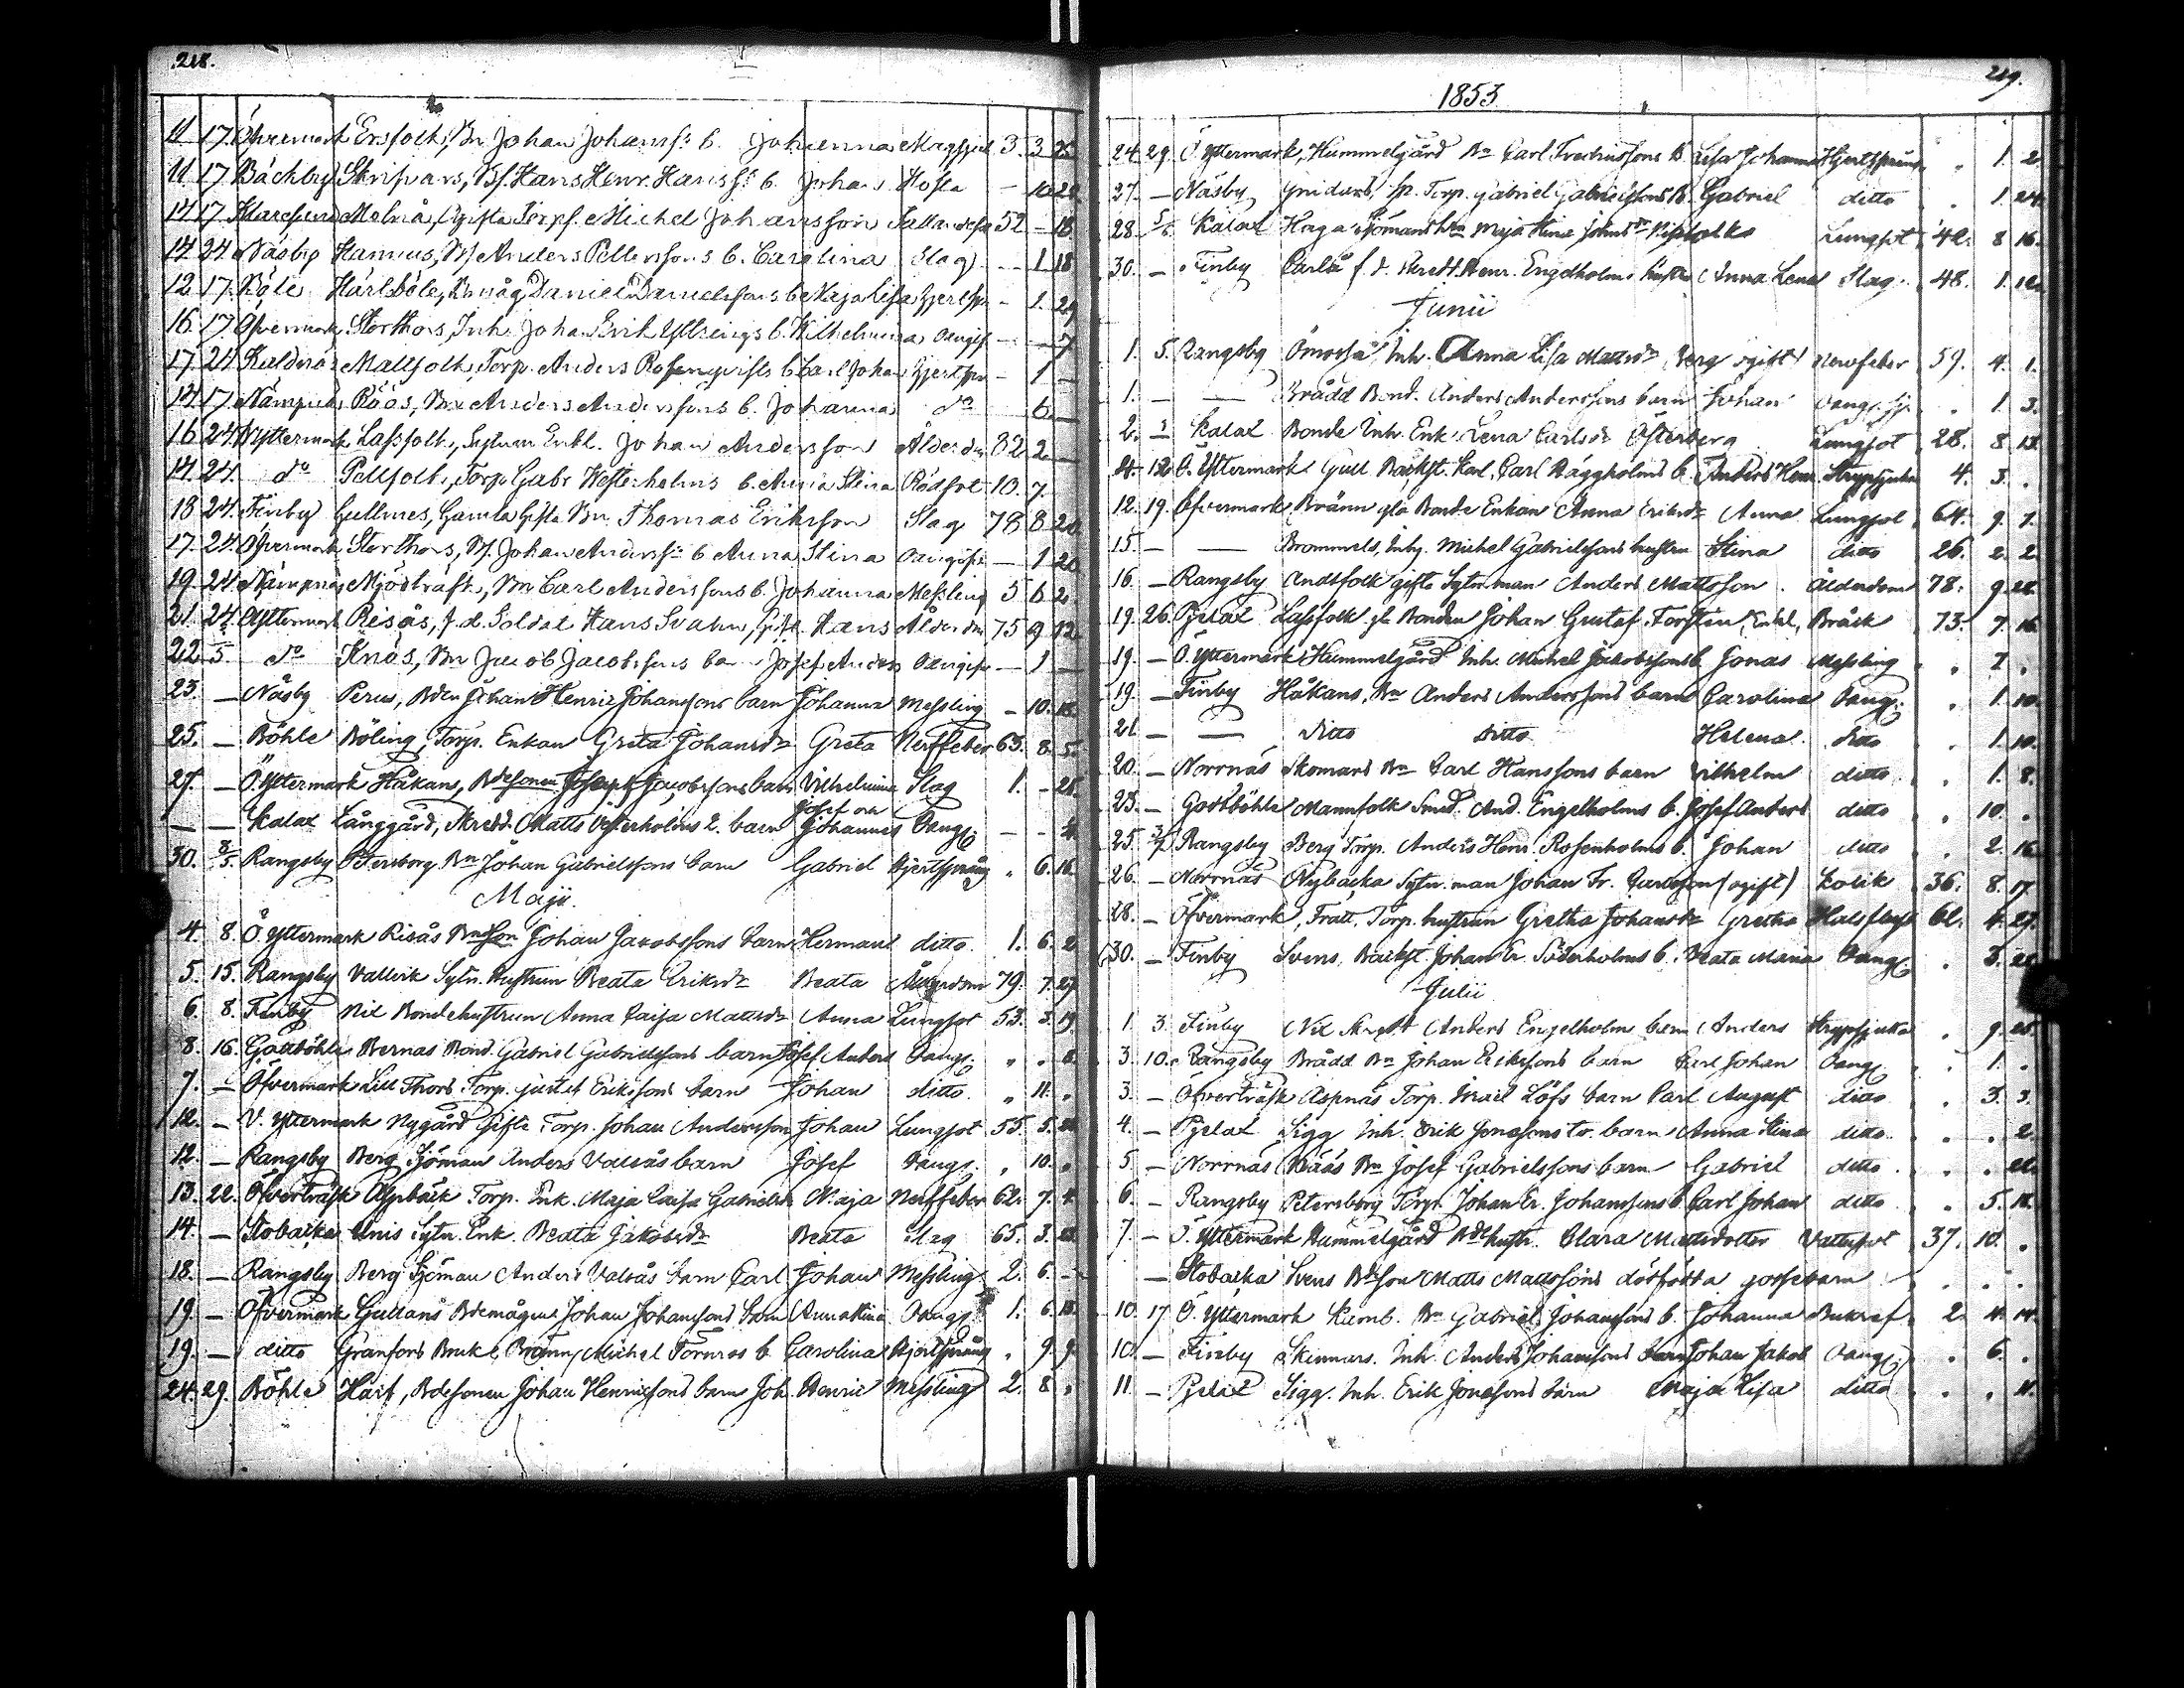 218.
11 17. Öfvermark Ersfolk, Bn Johan Johanss:s b. Johanna Magsjuk 3. 3 25
11 17 Bäckby Skrifvars, Bf. Hans Henr. Hanss:s b. Johan Hosta - 10 28
14 17 Malmå, Gifta Torp. Michel Johansson 52 - 18.
14 24. Näsby Hannus, Bf Anders Pettersons b. Carolina Slag - 1 18
12 17. Böle Harlsböle, Bmåg Daniel Danielssons b Maja Lisa Hjertspr - 1. 29
16. 17. Öfvermark Storthors, Inh. Johan Erik b. Wilhelmina Oangifv - - 7
17. 24 Kaldnäs Mattfolk, Torp. Anders Rosenqvists b Carl Johan Hjertspr - 1 -
14. 17 Nämpnäs Röös, Bn Anders Anderssons b. Johanna do 6 -
16 24 V Yttermark Lassfolk, Sytnm Enkl. Johan Andersson Ålderdm 82 2 -
14. 24. do Pellfolk, Torp Gabr Westerholms b. Anna Stina Rödsot 10. 7.
18 24. Finby Gullmes, Gamla Gifta Bn Thomas Eriksson Slag 78 8 20
17. 24. Öfvermark Storthors, Bf. Johan Anderss:s b Anna Stina Oangifv - 1 20
19. 24. Nämpnäs Mjödträsk, Bn Carl Anderssons b. Johanna Messling 5 6 2.
21. 24. Ö Yttermark Risås, f.d. Soldat Hans Svahn, Gift Hans Ålderdm 75 9 12.
22 5. do Knös, Bn Jacob Jacobssons barn Josef Anders Oangifv - 1 -
23. - Näsby Perus, Bden Johan Henric Johanssons barn Johanna Messling - 10. 18.
25. - Böhle Böling, Torp. Enkan Greta Johansdr Greta Nerffeber 63. 8. 5.
27. - Ö. Yttermark Håkans, Bdesonen Joseph Jacobssons barn Vilhelmina Slag 1. - 25.
Josef och
- - Kalax Långgård, Skredd. Matts Vesterholms 2. barn Johannes Oang. - - 4
30. 8/5. Rangsby Petersborg Bn Johan Gabrielssons barn Gabriel Hjertsprång " 6. 16.
Maji.
4. 8. Ö Yttermark Risås Bnson Johan Jakobssons barn Herman ditto 1. 6. 2
5. 15. Rangsby Vallvik Sytn. hustrun Beata Eriksdr Beata Ålderdom 79. 7. 27
6. 8. Finby Nix Bondehustrun Anna Caisa Mattsdr Anna Lungsot 53. 3. 19.
8. 16. Gottböhle Bernas Bond. Gabriel Gabrielssons barn Josef Anders Oang. " " 8.
7. - Öfvermark Lill Thors Torp. Erikssons barn Johan ditto " 11. "
12. - V. Yttermark Nygård Gifte Torp. Johan Andersson Johan Lungsot 55. 5.
12. - Rangsby Berg Sjöman Anders Valsås barn Josef Oang. " 10. "
13. 22. Öfverträsk Alpbäck Torp. Enk. Maja Caisa Gabrielsdr Maja Nerffeber 62. 7. 4.
14. - Stobacka Unis Sytn Enk. Beata Jakobsdr Beata Slag 65. 3.
18. - Rangsby Berg Sjöman Anders Valsås barn Carl Johan Messling 2. 6. -
19. - Öfvermark Gullans Bdemågens Johan Johanssons barn Anna Stina Oang. 1. 6. 18.
19. - ditto Granfors Bruk Michel Törnros b. Carolina Hjertsprång " 9. 9.
24. 29. Böhle Haif, Bdesonen Johan Henricssons barn Joh. Henric Messling 2. 8. "
219.
1853.
24. 29. Ö Yttermark, Hummelgård Bn Carl Fredrikssons b. Lisa Johanna Hjertsprång " 1. 2.
27. - Näsby Torp. Gabriel Gabrielssons b. Gabriel ditto " 1. 24.
28. 5/6. Kalax Haga Sjömans Maja Stina Johansdr Lungsot 42. 8 16.
30. - Finby Carlså f.d. Skredd. Henr. Engelholms hustru Anna Lena Slag. 48. 1. 12.
Junii
1. 5. Rangsby Ömossa Inh. Anna Lisa Mattsdr Berg ogift Nervfeber 59. 4. 1.
1. - - Brådd Bond. Anders Anderssons barn Johan Oang. " 1. 3.
2. Kalax Bonde Inh. Enk. Lena Carlsdr Österberg Lungsot 28. 8. 13.
4. 12. Ö. Yttermark Gull Backst. Karl. Carl Häggholms b. Anders Henr. Strypsjuka 4. 3. "
12. 19. Öfvermark Bränn gla Bonde Enkan Anna Eriksdr Anna Lungsot 64. 9. 7.
15. - - Brommels, Inh. Michel Gabrielssons hustru Stina ditto 26. 2. 2.
16. - Rangsby Andtfolk gifte Sytn. man Anders Mattsson. Ålderdom 78. 9
19. 26. Pjelax Lassfolk gla Bonden Johan Gustaf Forsten, Enkl. Bråck 73. 7. 16.
19. - Ö. Yttermark Hummelgård Inh. Michel Jakobssons b. Jonas Messling " 7. "
19. - Finby Håkans, Bn Anders Anderssons barn Carolina Oang. " 1. 10.
21. - - ditto ditto Helena ditto " 1. 10.
20. - Norrnäs Skomars Bn Carl Hanssons barn Vilhelm ditto " 1. 8.
23. - Gottböhle Mannfolk Smed. And. Engelholms b. Josef Anders ditto " 10. "
25. 3/7 Rangsby Berg Torp. Anders Henr. Rosenholms b. Johan ditto " 2. 16.
26. - Norrnäs Nybacka Sytn. man Johan Fr. Carlsson (ogift) Kolik 36. 8. 17.
28. - Öfvermark, Frätt, Torp. hustrun Gretha Johansdr Gretha Halsfluss 62. 4. 27.
30. - Finby Svens, Backst. Johan Er. Söderholms b. Beata Maria Oang. " 3.
Julii
1. 3. Finby Nix Skredd Anders Engelholms barn Anders Strypsjuka " 9.
3. 10. Rangsby Brådd Bn Johan Erikssons barn Carl Johan Oang. " 1. "
3. - Öfverträsk Aspnäs Torp. Israel Löfs barn Carl August ditto " 3. 3.
4. - Pjelax Sigg Inh. Erik Jonassons tv. barn Anna Stina ditto " " 2.
5. - Norrnäs Bäås Bn Josef Gabrielssons barn Gabriel ditto " "
6. - Rangsby Petersborg Torp. Johan Er. Johanssons b. Carl Johan ditto " 5. 18.
7. - Ö. Yttermark Hummelgård Bdehustr. Clara Mattsdotter Vattusot 37. 10. "
- Stobacka Svens Bdeson Matts Mattssons dödfödda gossebarn " " "
10. 17. Ö. Yttermark Kamb. Bn Gabriel Johanssons b. Johanna Bukref 2. 4. 14.
10. - Finby Skinnars. Inh. Anders Johanssons barn Johan Jakob Oang. " 6. "
11. - Pjelax Sigg. Inh. Erik Jonassons barn Maja Lisa ditto " " 11.